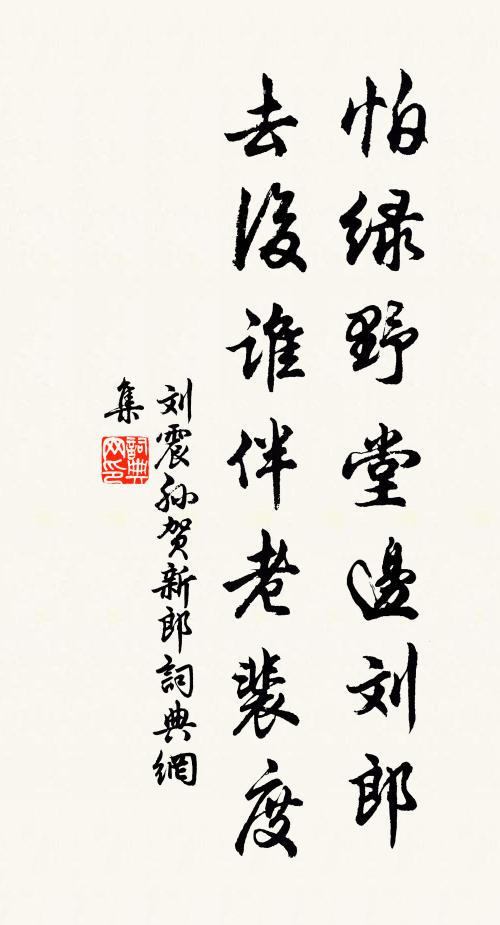 怕绿野堂邊刘郎
去後谁伴老裴度
刘震孙贺新郎詞典網
集
詞典
网印